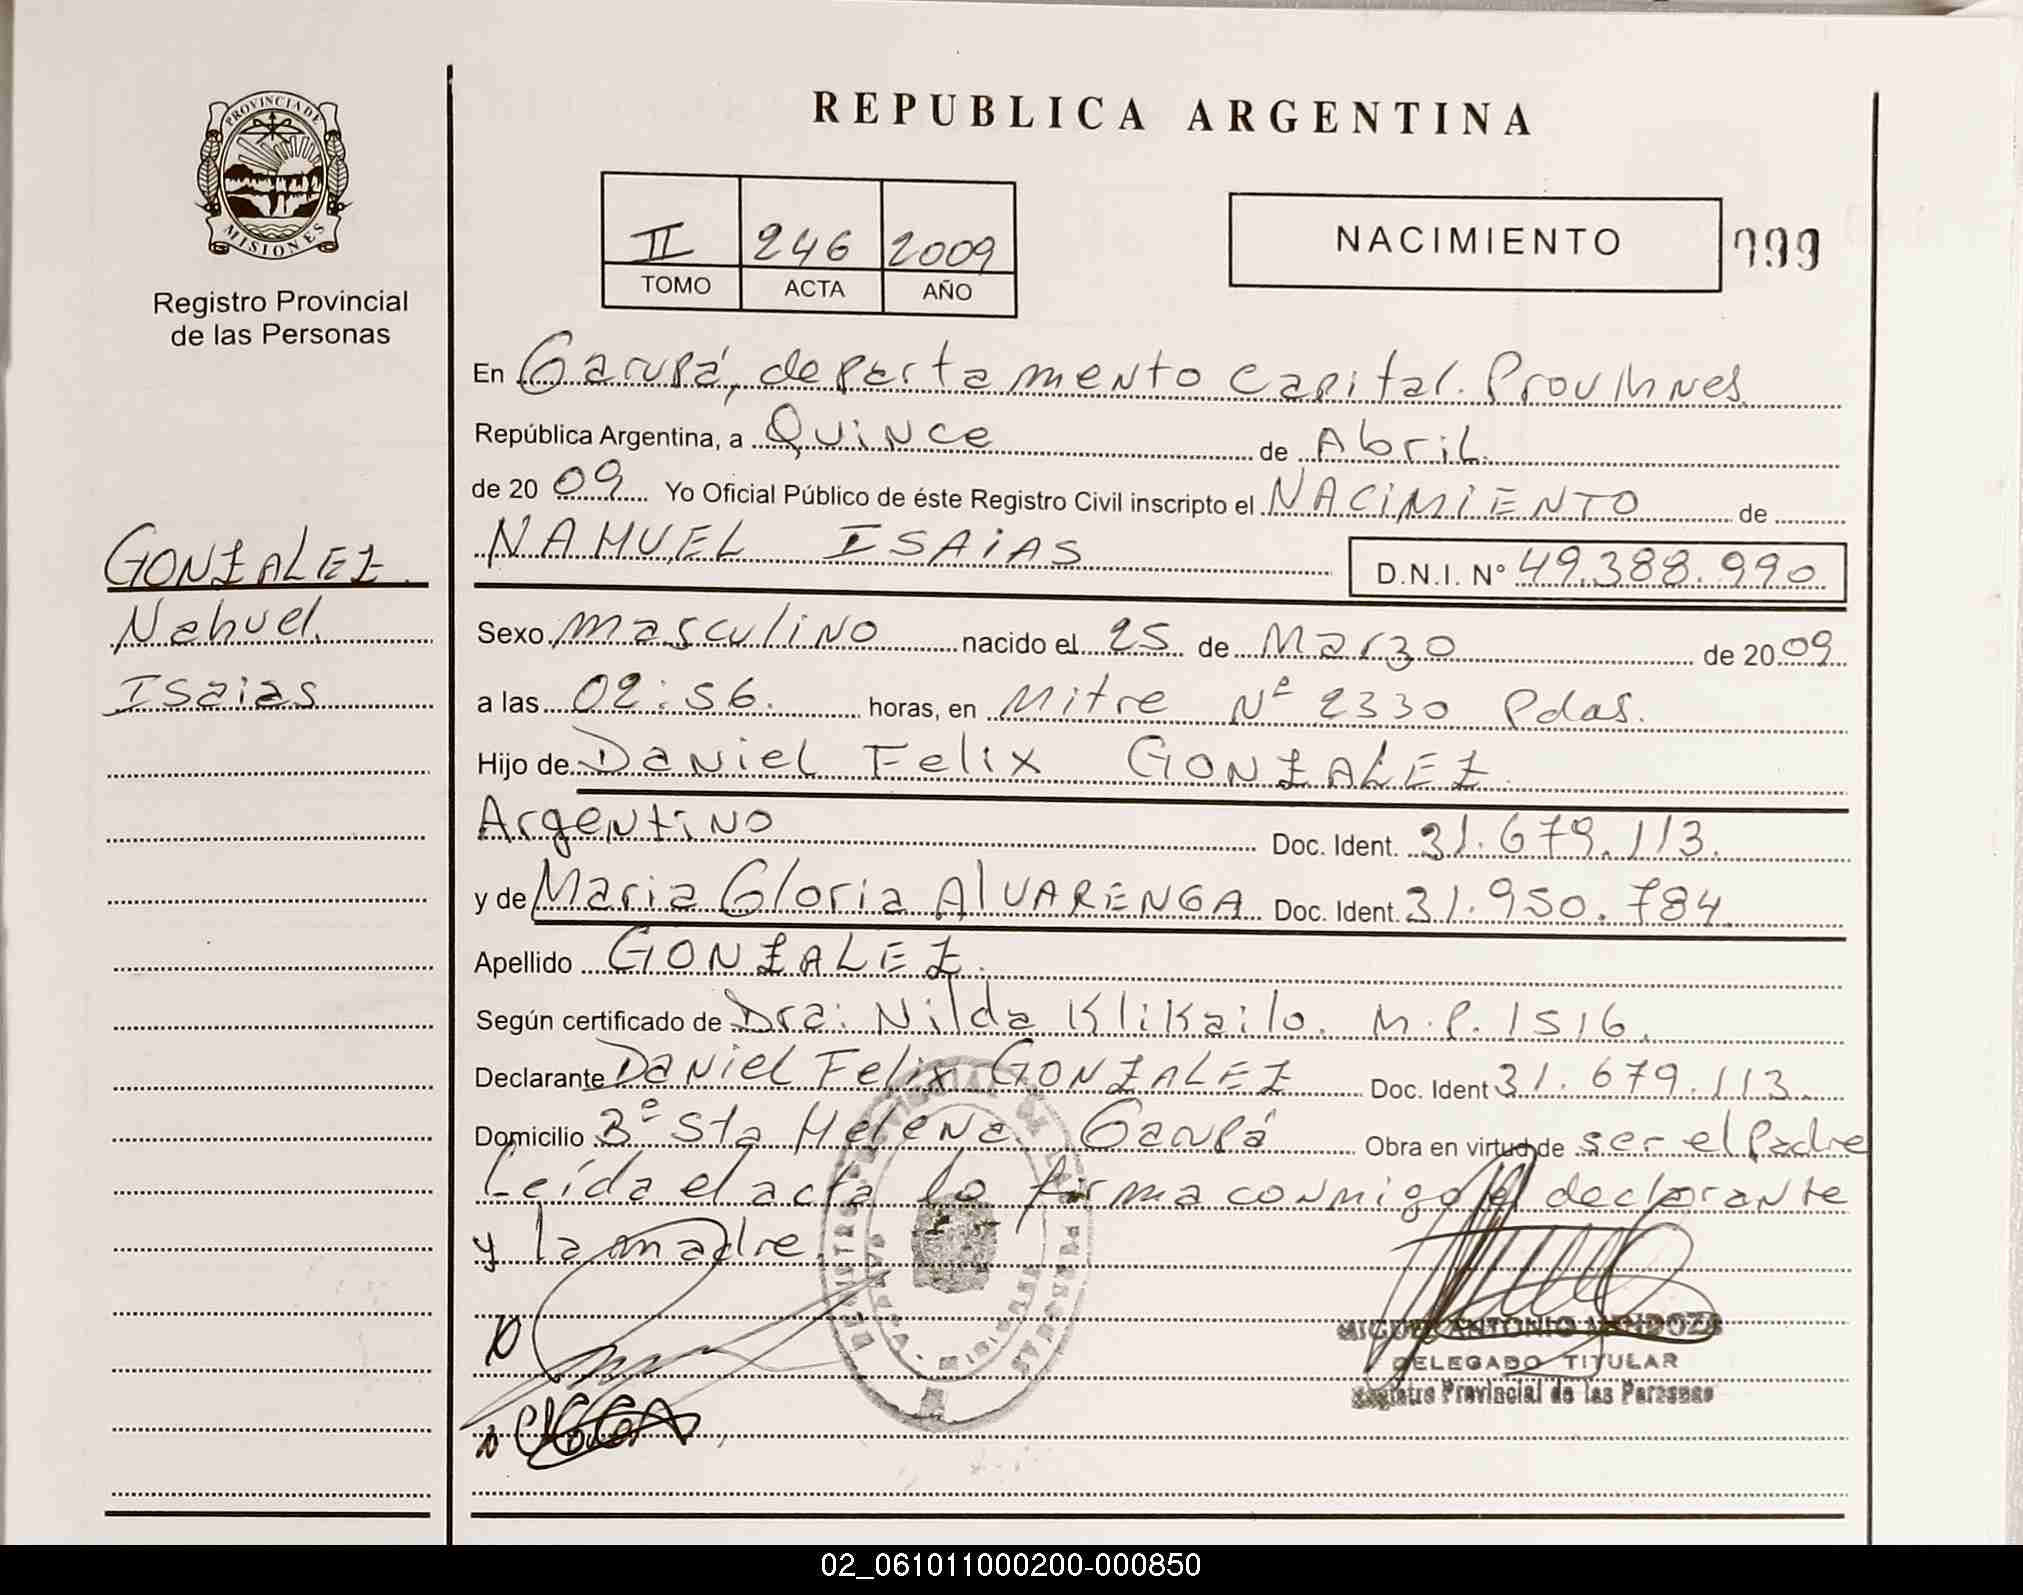 REPUBLICA ARGENTINA
PROVINCIA DE
MISIONES
Registro Provincial
de las Personas
II 246 2009
TOMO ACTA AÑO
NACIMIENTO
999
GONZALEZ
Nahuel
Isaias
En Garupá, departamento Capital. Prov Mnes
República Argentina, a Quince de Abril
de 20 09 Yo Oficial Público de éste Registro Civil inscripto el NACIMIENTO de
NAHUEL ISAIAS D.N.I. Nº 49.388.990
Sexo masculino nacido el 25 de Marzo de 20 09
a las 02:56. horas, en Mitre Nº 2330 Pdas.
Hijo de Daniel Felix GONZALEZ
Argentino Doc. Ident. 31.679.113.
y de Maria Gloria ALVARENGA Doc. Ident. 31.950.784
Apellido GONZALEZ.
Según certificado de Dra: Nilda Klikailo. M.P. 1516.
Declarante Daniel Felix GONZALEZ Doc. Ident 31.679.113.
Domicilio Bº Sta Helena Garupá Obra en virtud de ser el Padre
Leída el acta la firma conmigo el declarante
y la madre.
MIGUEL ANTONIO MENDOZA
DELEGADO TITULAR
Registro Provincial de las Personas
02_061011000200-000850